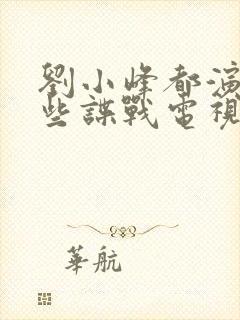 劉小峰都演
些諜戰電視
華航